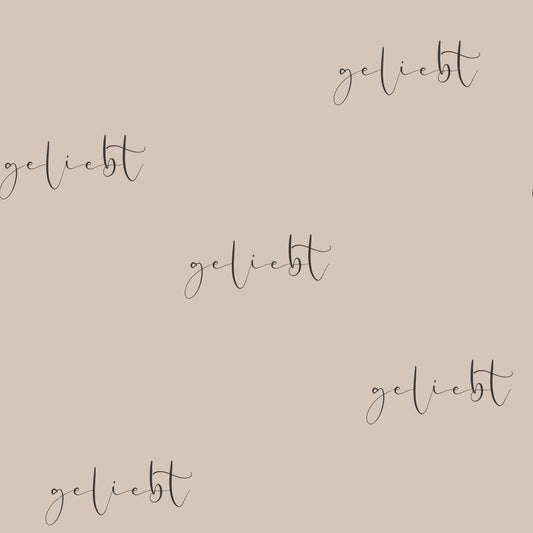 geliebt
geliebt
geliebt
geliebt
geliebt